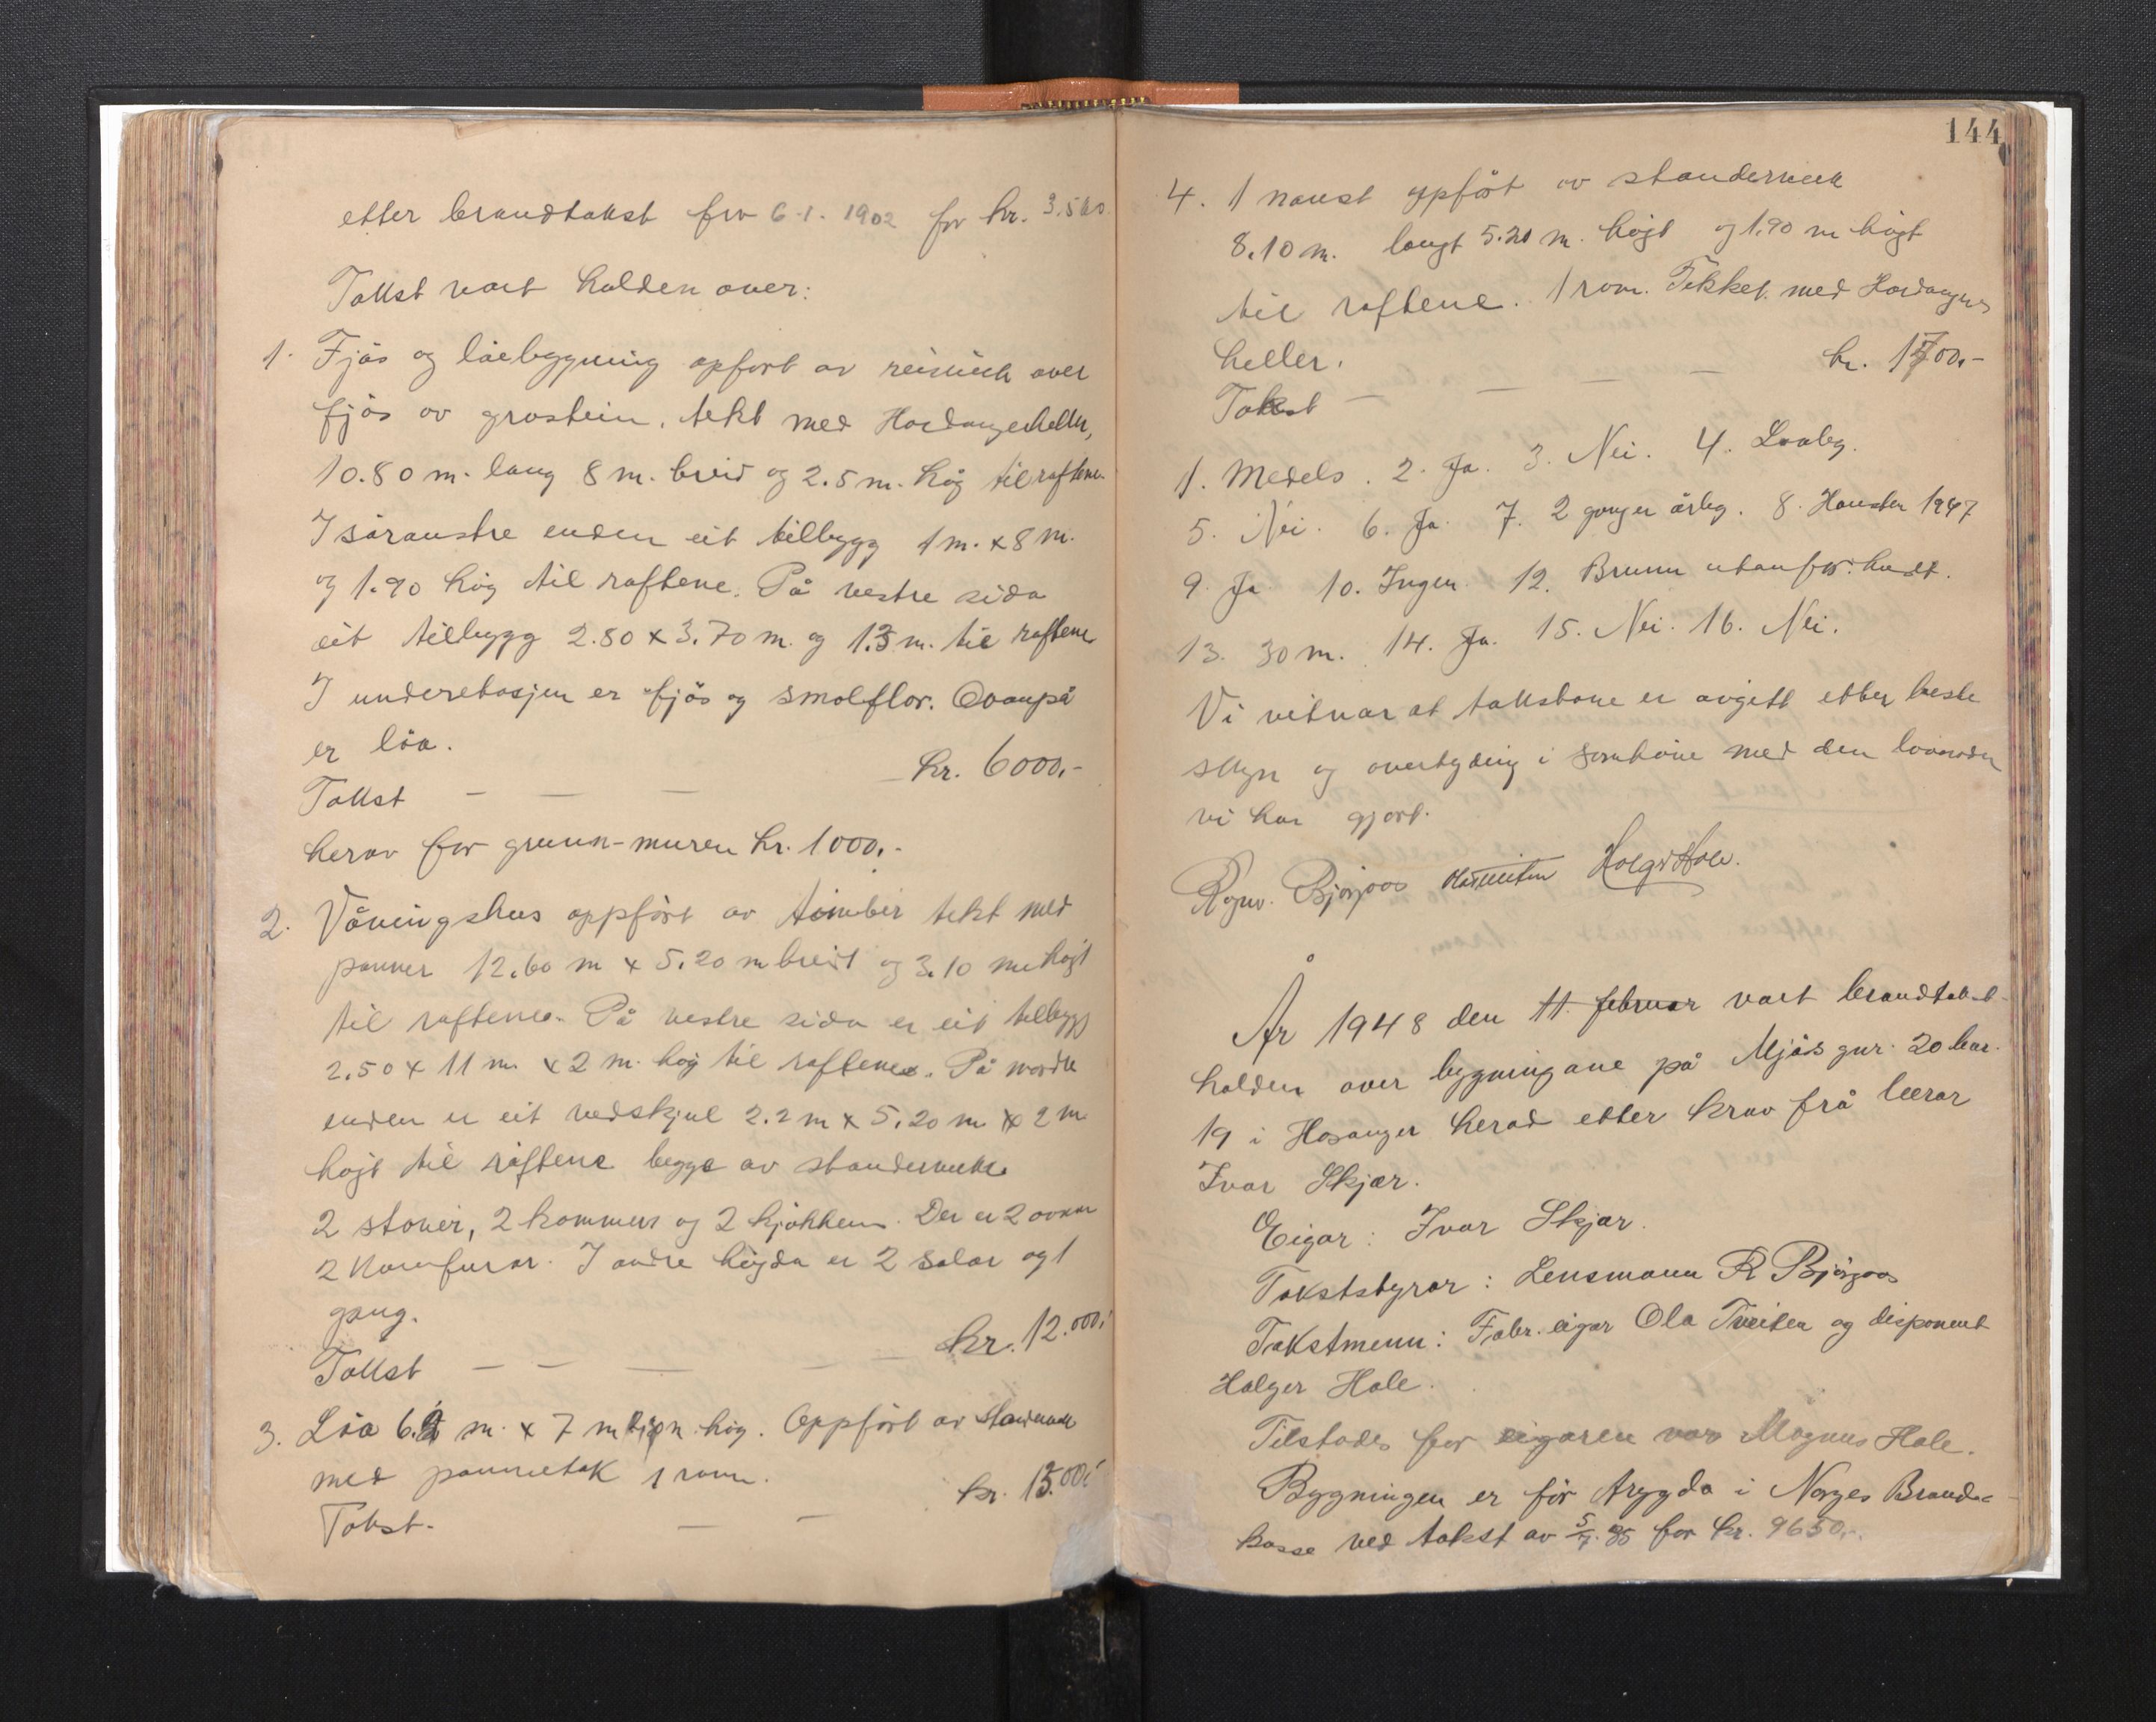 etter brandtakst fra 6.1. 1902 for kr. 3.500
Takst vart halden over:
1. Fjøs og løebygning opført av reisverk over
fjøs av gråstein, tekt med Hardangerheller,
10.80 m. lang 8 m. breid og 2.5 m. høg til raftene.
I søraustre enden eit tilbygg 1 m. x 8 m.
og 1.90 høg til raftene. På vestre sida
eit tilbygg 2.80 x 3.70 m. og 1.3 m. til raftene
I underetasjen er fjøs og smalflor. Ovanpå
er løa.
Takst — — — kr. 6000,-
herav for grunn-muren kr. 1000,-
2. Våningshus oppført av timber tekt med
panner 12.60 m x 5.20 m breidt og 3.10 m høgt
til raftene. På vestre sida er eit tilbygg
2.50 x 11 m x 2 m. høg til raftene. På nordre
enden er eit vedskjul 2.2 m x 5.20 m x 2 m
høgt til raftene begge av standerverk.
2 stover, 2 kammers og 2 kjøkken. Der er 2 ovnar
2 komfurar. I andre høgda er 2 salar og 1
gang.
Takst — — — — — kr. 12.000,-
3. Løa 6.2 m. x 7 m høg. Oppført av standerverk
med pannetak 1 rom.
Takst. — — kr. 1500,-
144
4. 1 naust oppført av standerverk
8.10 m. langt 5.20 m. høgt og 1.90 m høgt
til raftene. 1 rom. Tekket med Hardanger
heller.
Takst — — — — kr. 1700,-
1. Medels. 2. Ja. 3. Nei. 4. Laaleg.
5. Nei. 6. Ja. 7. 2 ganger årleg. 8. Hausten 1947
9. Ja 10. Ingen. 12. Brunn utanfor huset.
13. 30 m. 14. Ja. 15. Nei. 16. Nei.
Vi vitnar at takstane er avgitt etter beste
skyn og overtyding i samhøve med den lovnaden
vi har gjort.
Ragnv. Bjørgaas Ola Tveiten Holger Hole.
År 1948 den 11. februar vart brandtakst
halden over bygningane på Mjøs gnr. 20 bnr.
19 i Hosanger herad etter krav frå lærar
Ivar Skjær.
Eigar: Ivar Skjær.
Takststyrar: Lensmann R Bjørgaas
Takstmenn: Fabr. eigar Ola Tveiten og disponent
Holger Hole.
Tilstades for eigaren var Magnus Hole.
Bygningen er før trygda i Norges Brand-
kasse ved takst av 5/7. 35 for kr. 9650,-.